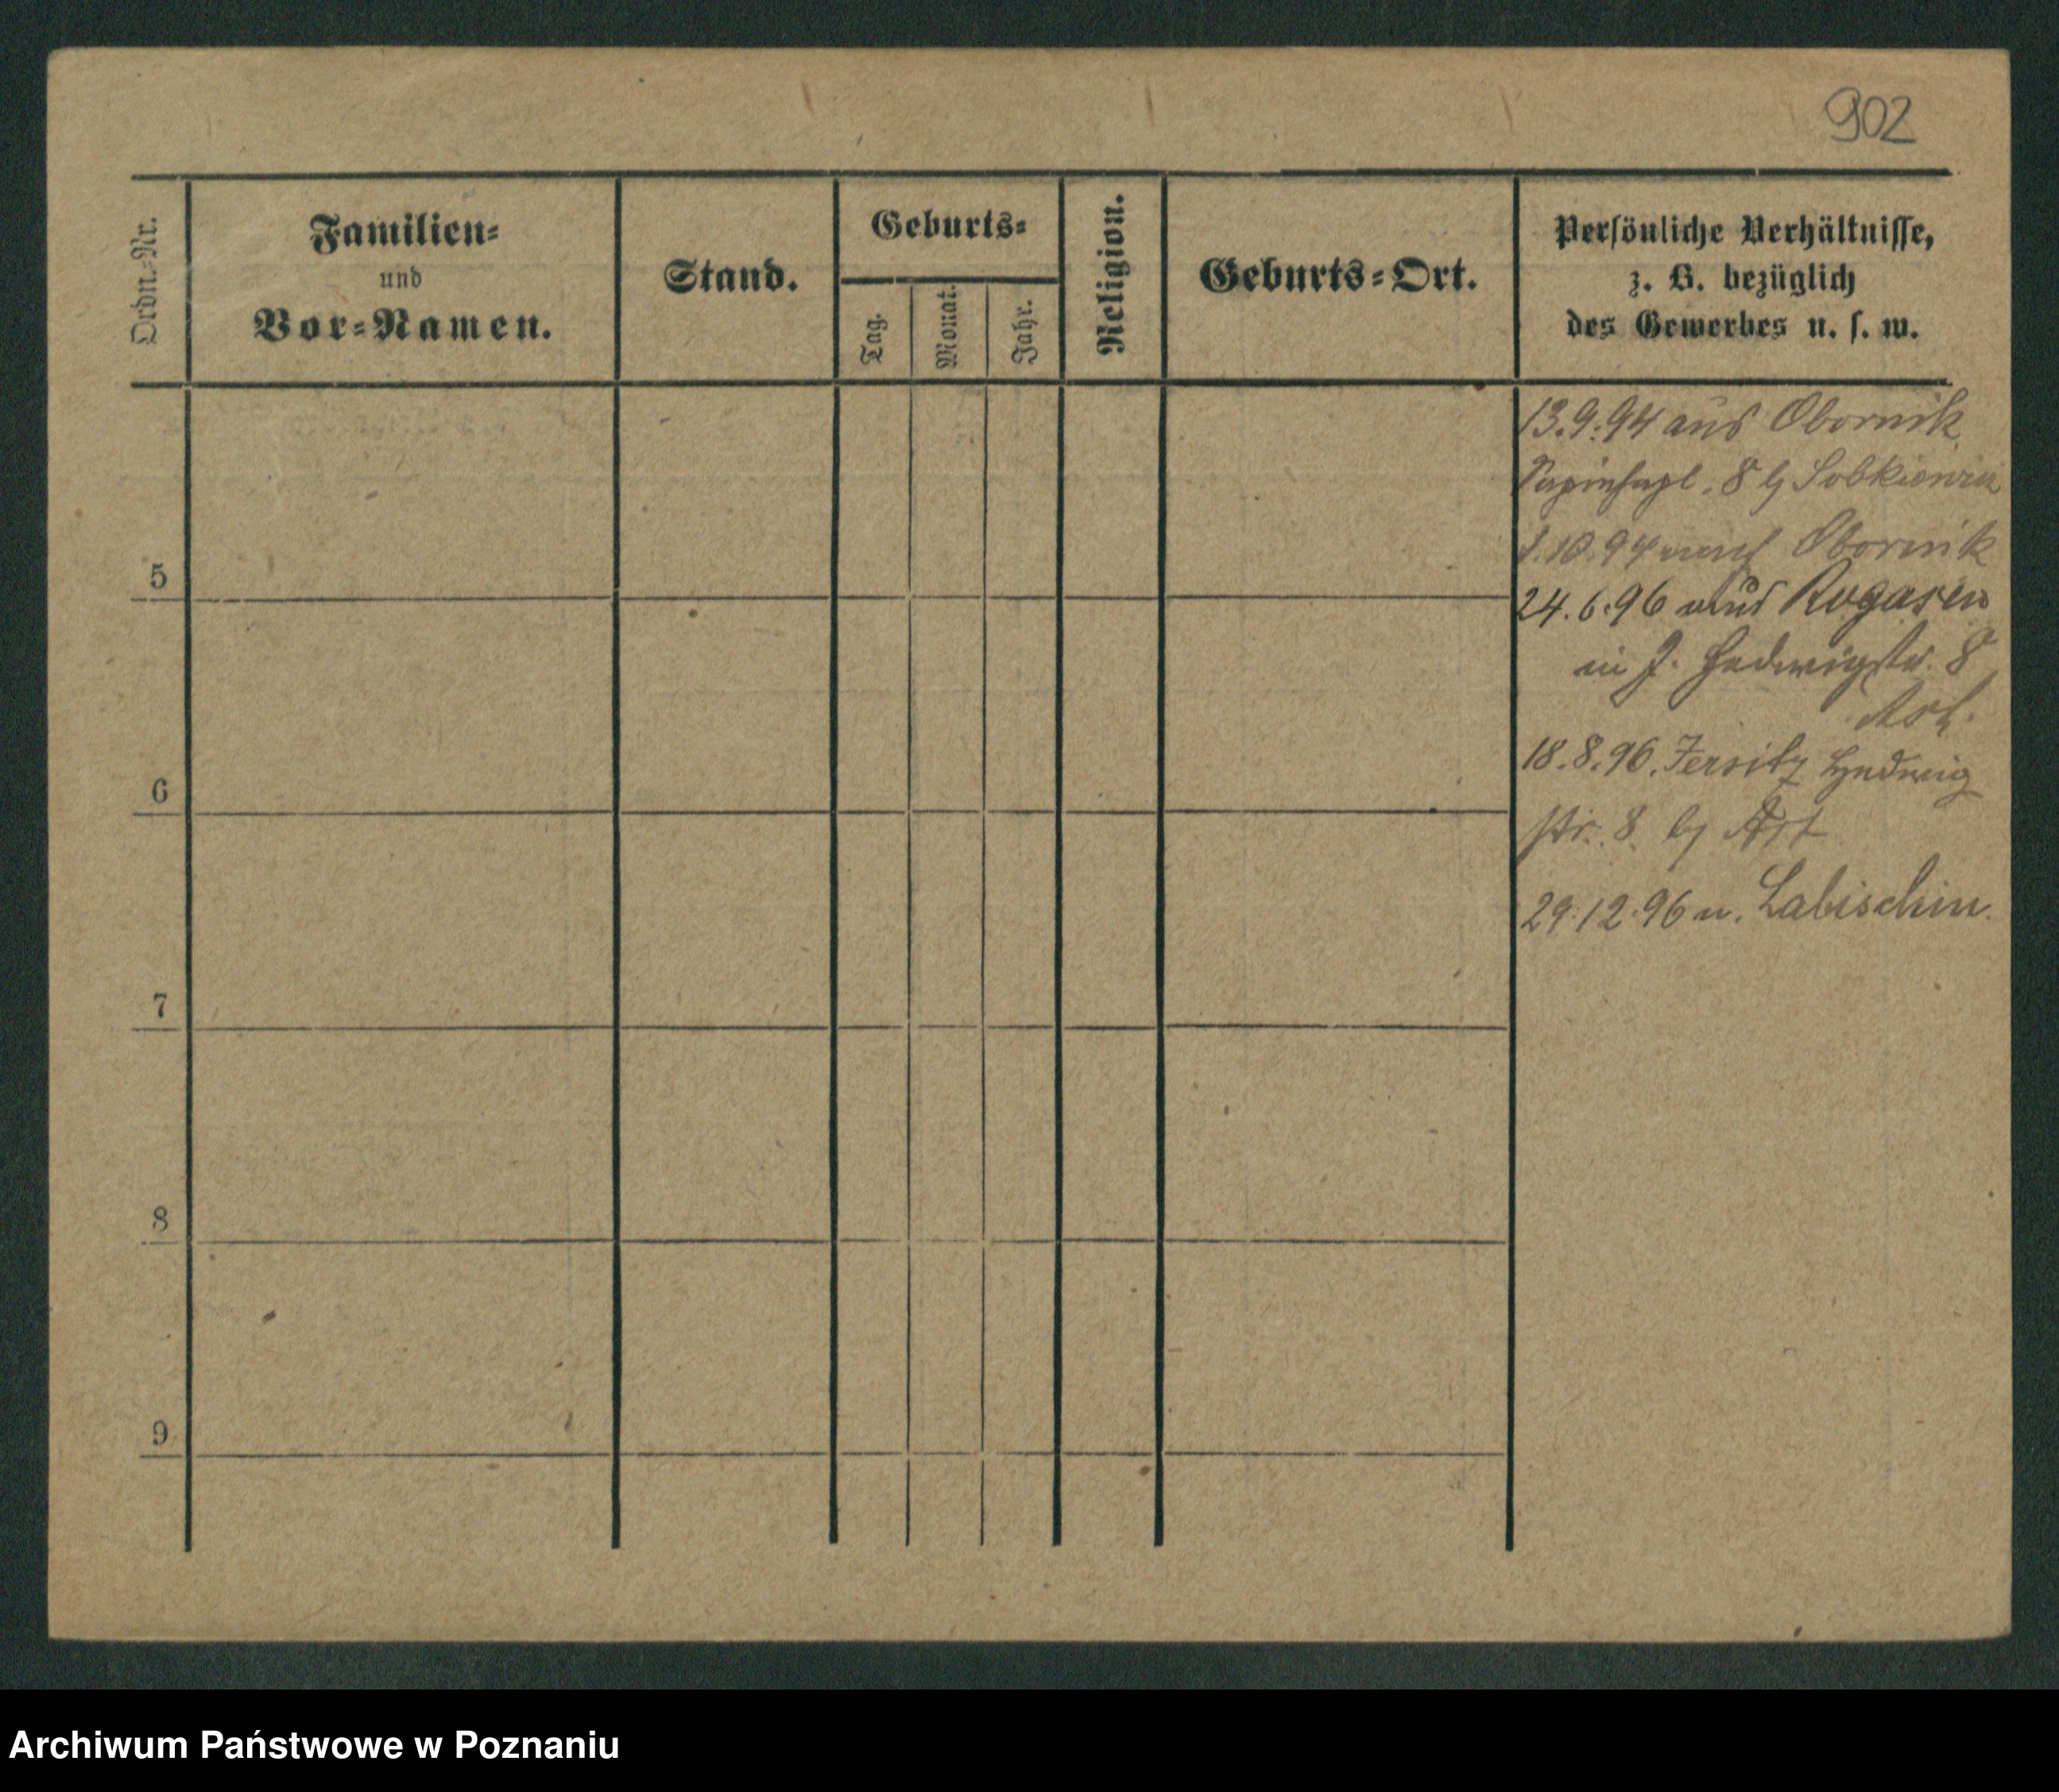 902
Ordn.-Nr.
Familien-
und
Vor-Namen.
Stand.
Geburts-
Tag.
Monat.
Jahr.
Religion.
Geburts-Ort.
Persönliche Verhältnisse,
z. B. bezüglich
des Gewerbes u. s. w.
13.9.94 aus Obornik
8 b/ Sobkiewicz
1.10.94 nach Obornik
5
24.6.96 aus Rogasen
in J. Hedwigstr. 8
18.8.96. Jersitz Hedwig
6
str. 8 b/
29.12.96 n. Labischin.
7
8
9
Archiwum Państwowe w Poznaniu